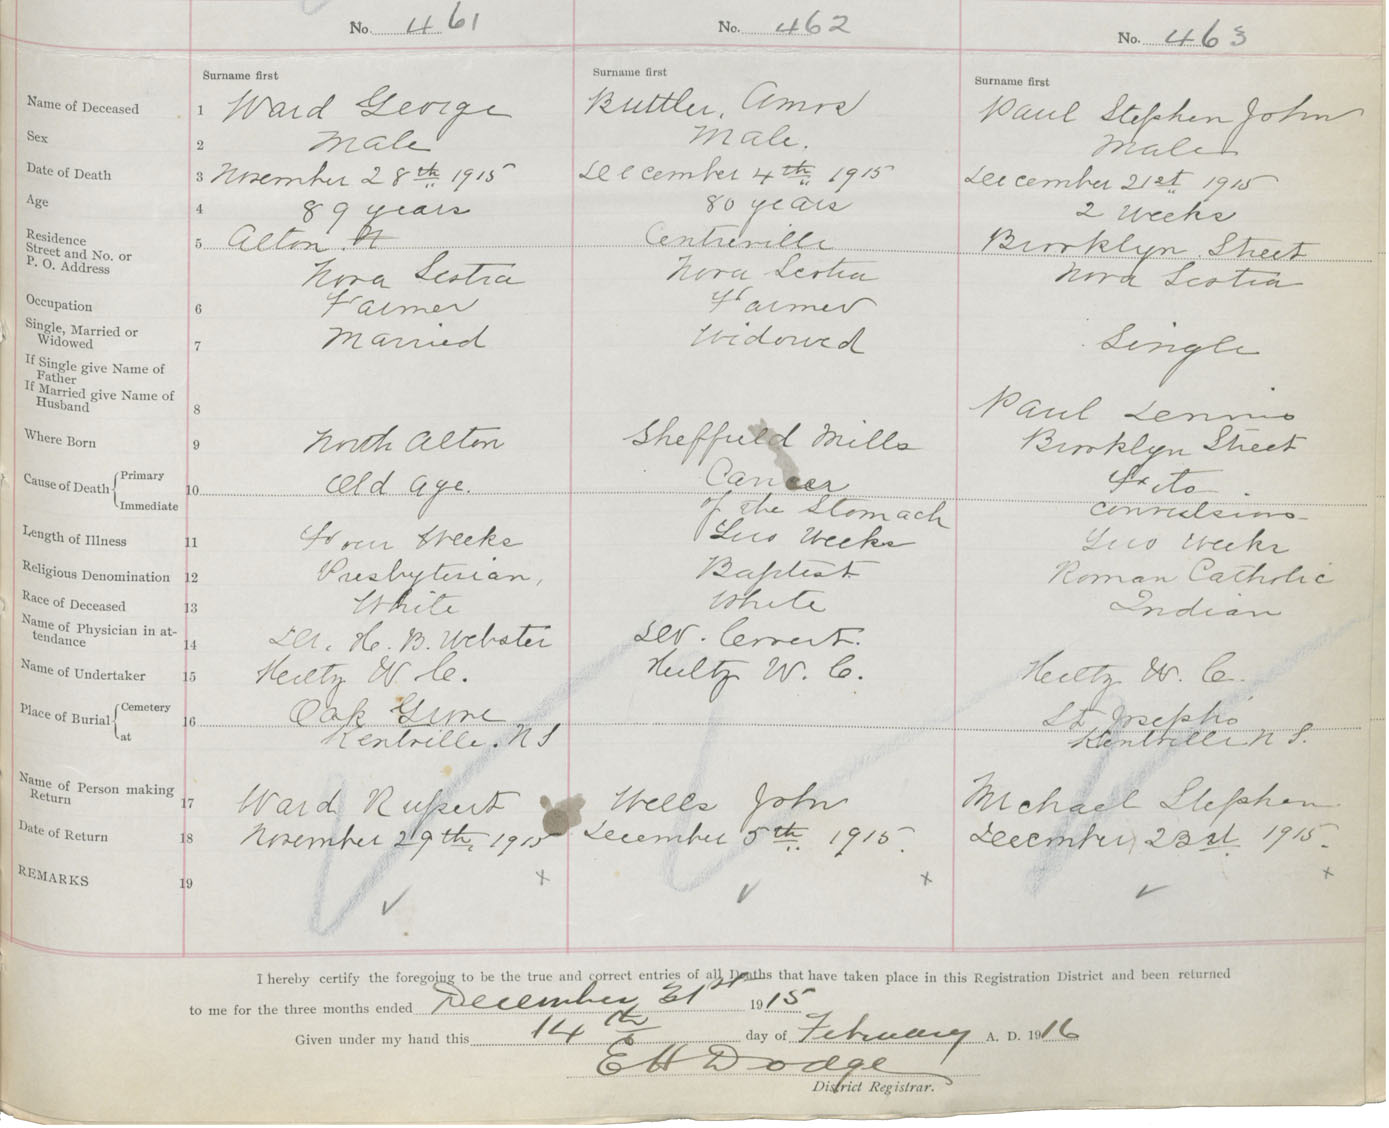 No. 461 No. 462 No. 463
Surname first Surname first Surname first
Name of Deceased 1 Ward George Buttler, Amos Paul Stephen John
Sex 2 Male Male. Male
Date of Death 3 November 28th 1915 December 4th 1915 December 21st 1915
Age 4 89 years 80 years 2 Weeks
Residence
Street and No. or 5 Alton N Centreville Brooklyn Street
P. O. Address Nova Scotia Nova Scotia Nova Scotia
Occupation 6 Farmer Farmer
Single, Married or
Widowed 7 Married Widowed Single
If Single give Name of
Father
If Married give Name of
Husband 8 Paul Dennis
Where Born 9 North Alton Sheffield Mills Brooklyn Street
Cause of Death Primary 10 Old Age. Cancer Fits
Immediate of the Stomach convulsions
Length of Illness 11 Four Weeks Two Weeks Two Weeks
Religious Denomination 12 Presbyterian, Baptist Roman Catholic
Race of Deceased 13 White White Indian
Name of Physician in at-
tendance 14 Dr. H. B. Webster Dr.
Name of Undertaker 15 Hiltz W. C. Hiltz W. C. Hiltz W. C.
Place of Burial Cemetery 16 Oak Grove St. Joseph's
at Kentville. N S Kentville N S.
Name of Person making
Return 17 Ward Rupert Wells John Michael Stephen
Date of Return 18 November 29th, 1915 December 5th 1915. December 23st 1915.
REMARKS 19 x x x
I hereby certify the foregoing to be the true and correct entries of all Deaths that have taken place in this Registration District and been returned
to me for the three months ended December 31st 1915
Given under my hand this 14th day of February A. D. 1916
E H Dodge
District Registrar.